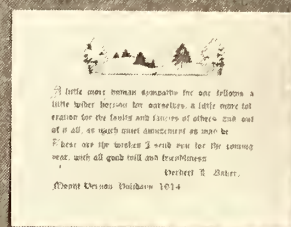 A little more human sympathy for our fellows a
little wider horizon for ourselves, a little more tol
eration for the faults and fancies of others and out
of it all, as much quiet amusement as may be
These are the wishes I send you for the coming
year, with all good will and friendliness
Herbert Baker,
Mount Vernon Holidays 1914